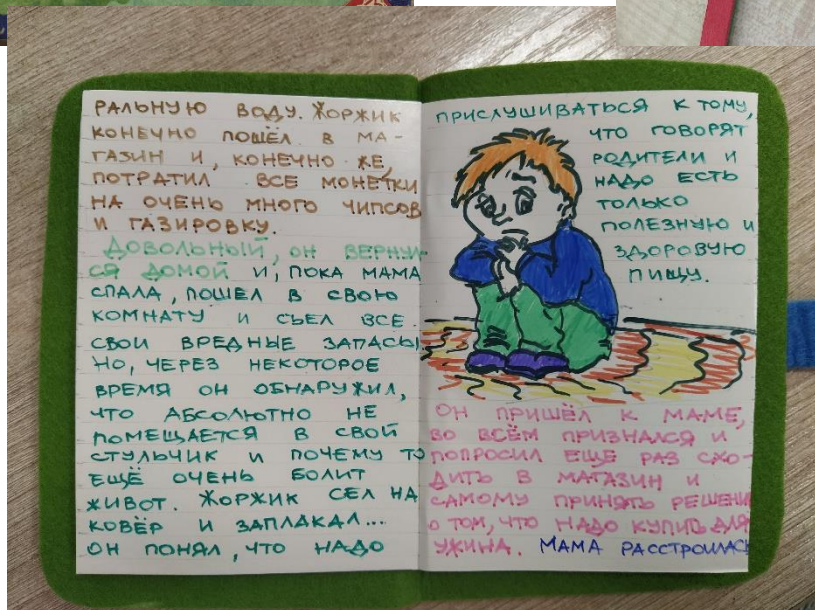 РАЛЬНУЮ ВОДУ. ЖОРЖИК
КОНЕЧНО ПОШЁЛ В МА-
ГАЗИН И, КОНЕЧНО ЖЕ,
ПОТРАТИЛ ВСЕ МОНЕТКИ
НА ОЧЕНЬ МНОГО ЧИПСОВ
И ГАЗИРОВКУ.
ДОВОЛЬНЫЙ, ОН ВЕРНУЛ-
СЯ ДОМОЙ И, ПОКА МАМА
СПАЛА, ПОШЕЛ В СВОЮ
КОМНАТУ И СЪЕЛ ВСЕ
СВОИ ВРЕДНЫЕ ЗАПАСЫ.
НО, ЧЕРЕЗ НЕКОТОРОЕ
ВРЕМЯ ОН ОБНАРУЖИЛ,
ЧТО АБСОЛЮТНО НЕ
ПОМЕЩАЕТСЯ В СВОЙ
СТУЛЬЧИК И ПОЧЕМУ ТО
ЕЩЁ ОЧЕНЬ БОЛИТ
ЖИВОТ. ЖОРЖИК СЕЛ НА
КОВЁР И ЗАПЛАКАЛ...
ОН ПОНЯЛ, ЧТО НАДО
ПРИСЛУШИВАТЬСЯ К ТОМУ,
ЧТО ГОВОРЯТ
РОДИТЕЛИ И
НАДО ЕСТЬ
ТОЛЬКО
ПОЛЕЗНУЮ И
ЗДОРОВУЮ
ПИЩУ.
ОН ПРИШЁЛ К МАМЕ,
ВО ВСЁМ ПРИЗНАЛСЯ И
ПОПРОСИЛ ЕЩЕ РАЗ СХО-
ДИТЬ В МАГАЗИН И
САМОМУ ПРИНЯТЬ РЕШЕНИЕ
О ТОМ, ЧТО НАДО КУПИТЬ ДЛЯ
УЖИНА. МАМА РАССТРОИЛАСЬ